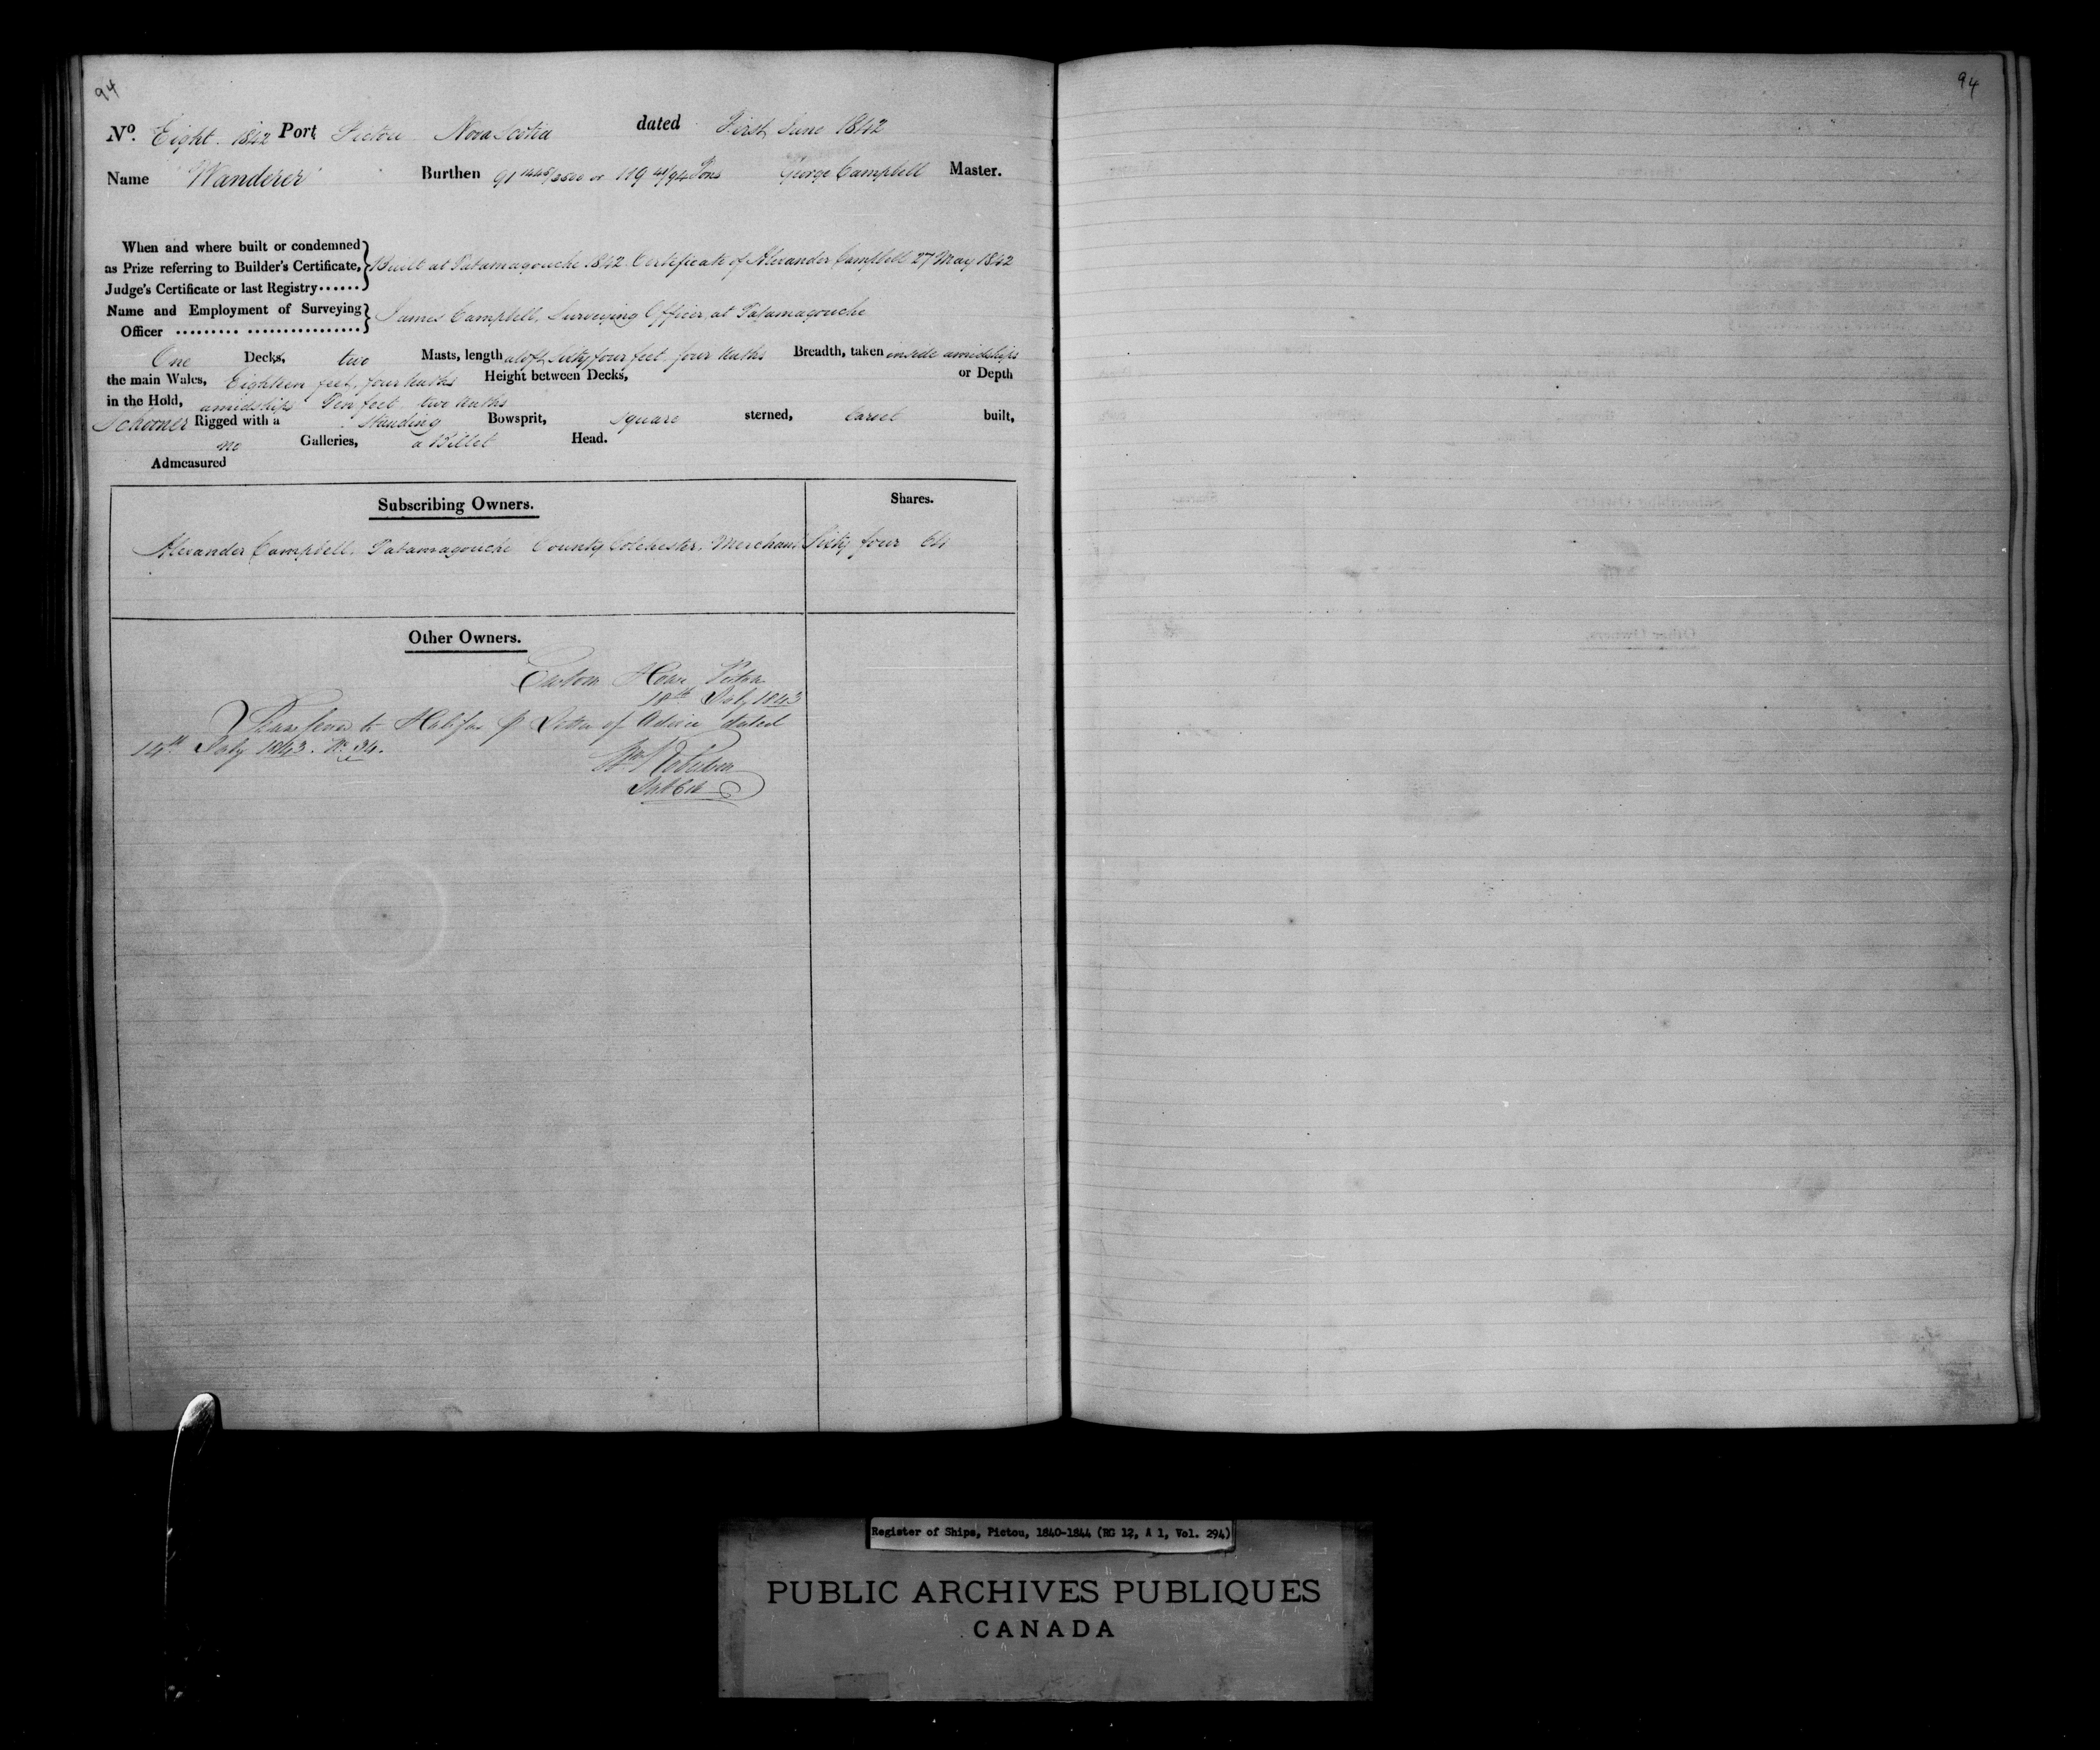 94
94
No. Eight 1842 Port Pictou Nova Scotia dated First June 1842
Name "Wanderer" Burthen 91 1448/3500 or 119 41/94 Tons George Campbell Master.
When and where built or condemned
as Prize referring to Builder's Certificate, Built at Tatamagouche 1842 Certificate of Alexander Campbell 27 May 1842
Judge's Certificate or last Registry ......
Name and Employment of Surveying James Campbell, Surveying Officer at Tatamagouche
Officer ......... ................
One Decks, two Masts, length aloft Sixty four feet four tenths Breadth, taken inside amidships
the main Wales, Eighteen feet, four tenths Height between Decks, or Depth
in the Hold, amidships Ten feet two tenths
Schooner Rigged with a Standing Bowsprit, Square sterned, Carvel built,
no Galleries, a Billet Head.
Admeasured
Subscribing Owners. Shares.
Alexander Campbell, Tatamagouche County Colchester, Merchant Sixty four 64
Other Owners.
Custom House Pictou
18th July 1843
Transferred to Halifax p Letter of Advice dated
14th July 1843. No. 34.
Register of Ships, Pictou, 1840-1844 (RG 12, A 1, Vol. 294)
PUBLIC ARCHIVES PUBLIQUES
CANADA